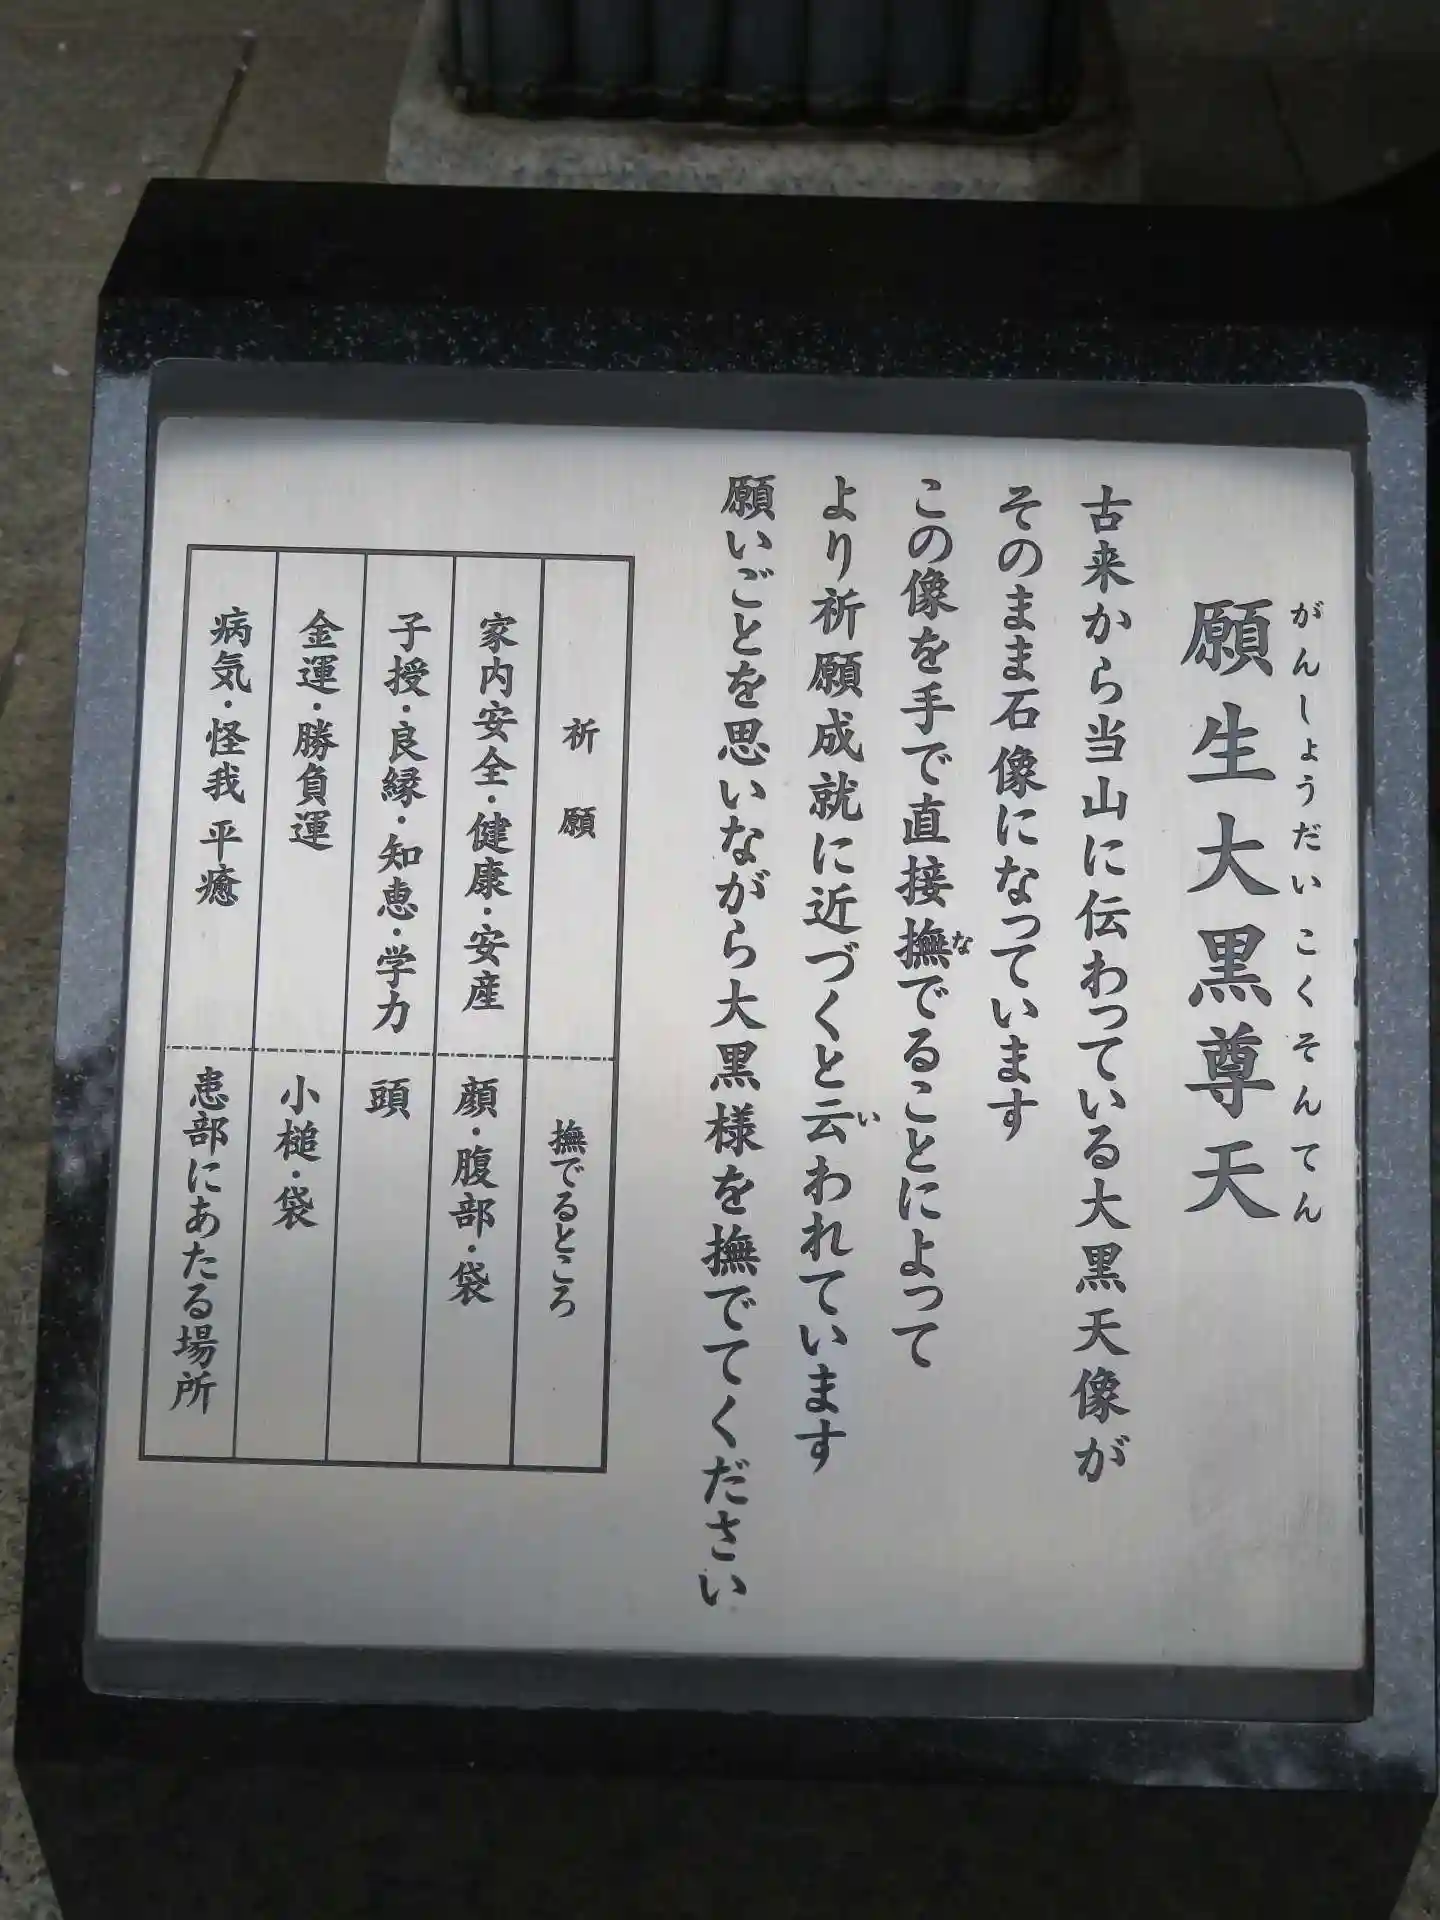 がんしょうだいこくそんてん
願生大黒尊天
古来から当山に伝わっている大黒天像が
そのまま石像になっています
この像を手で直接撫でることによって
な
より祈願成就に近づくと云われています
い
願いごとを思いながら大黒様を撫でてください
祈願
撫でるところ
家内安全・健康・安産
顔・腹部・袋
子授・良縁・知恵・学力
頭
金運・勝負運
小槌・袋
病気・怪我 平癒
患部にあたる場所